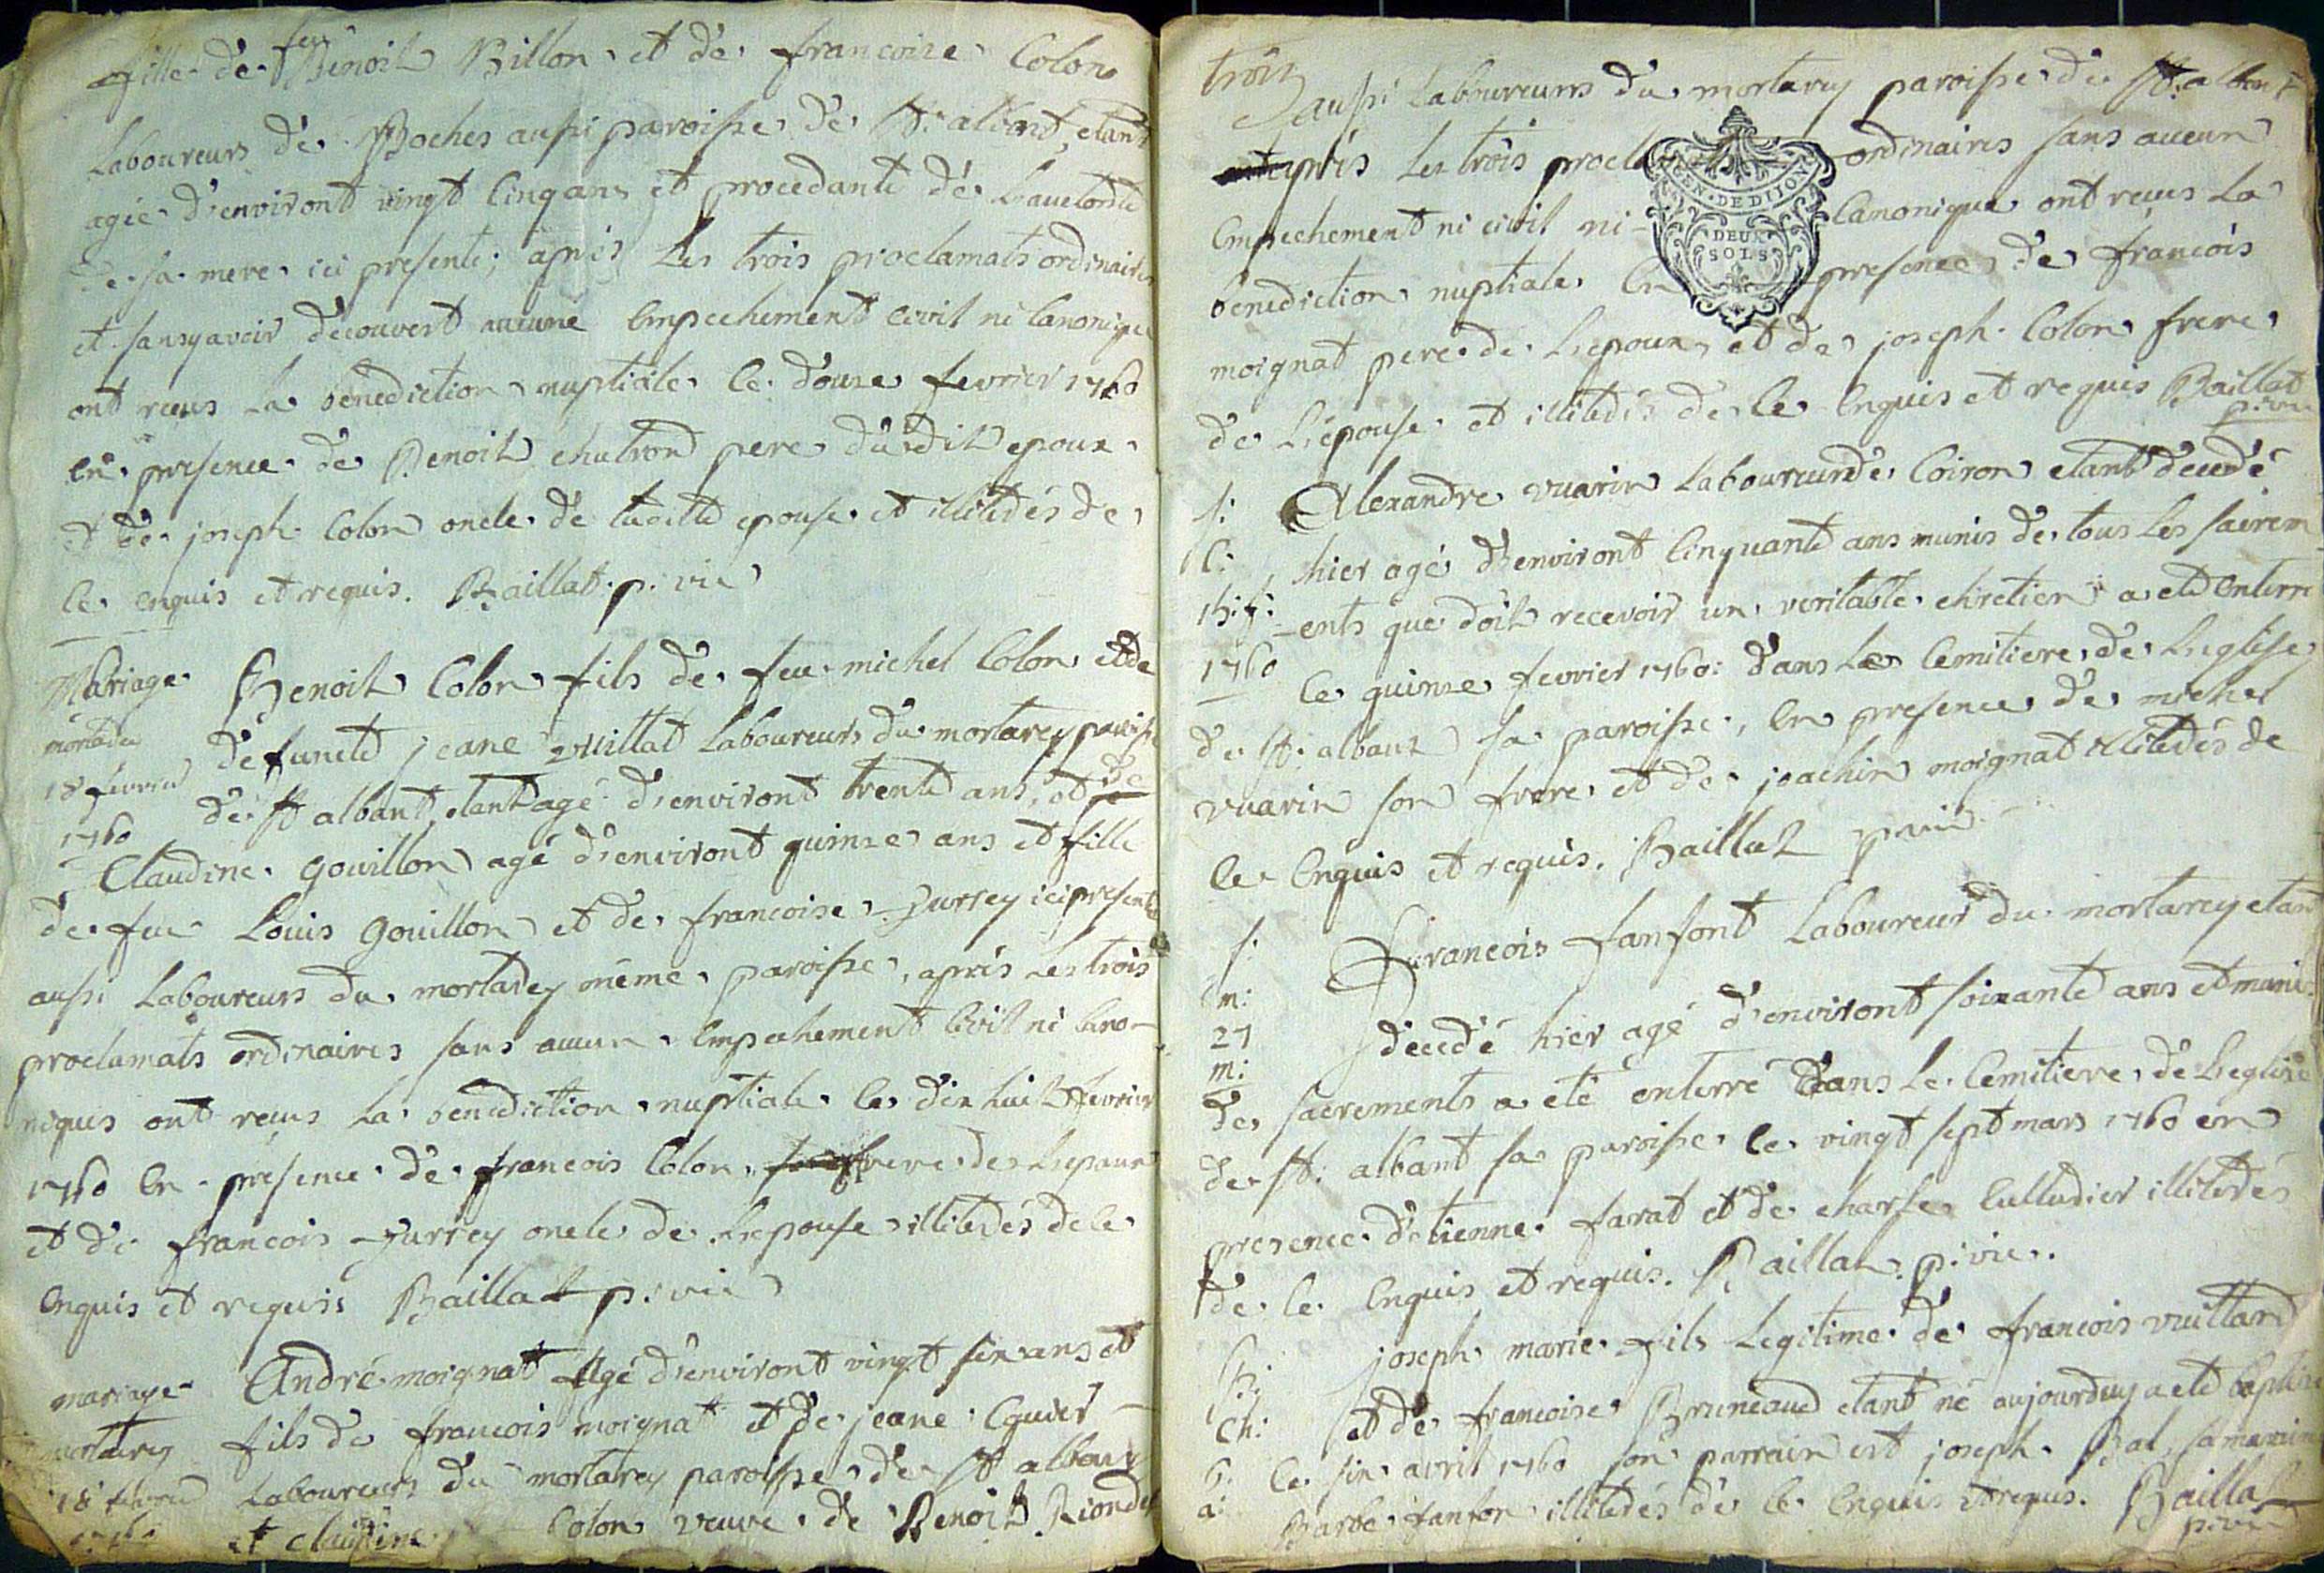 fille de feu Benoit Billon et de francoise Colon
Laboureurs de Boches aussi paroisse de St. albant, etant
agée d'environt vingt Cinq ans et procedante de L'autorité
de sa mere ici presente; aprés Les trois proclamats ordinaires
et sans y avoir decouvert aucune Empechement civil ni Canonique
ont reçus La benediction nuptiale le douze fevrier 1760
En presence de Benoit chatrond pere dudit epoux
et de joseph Colon oncle de epouse et illitedés de
ce enquis et requis. Baillat p. vic
Mariage Benoit Colon fils de feu michel Colon et de
mortarey defuncte jeane vuillat Laboureurs du mortarey paroisse
18 fevrier de St albant, etant agé d'environt trente ans, et de
1760 Claudine Gouillon agé d'environt quinze ans et fille
de feu Louis Gouillon et de francoise Jurrey ici presente
aussi Laboureurs du mortarey méme paroisse, aprés Les trois
proclamats ordinaires sans aucun Empechement Civil ni Cano-
niques ont reçus La benediction nuptiale le dix huit fevrier
1760 En presence de francois Colon frere de L'epoux
et de francois Jurrey oncle de L'epouse illitedés de ce
Enquis et requis Baillat p. vic
mariage André moignat Agé d'environt vingt six ans et
mortarey fils de francois moignat et de jeane Eguier
18 fevrier Laboureurs du mortarey paroisse de St albant
1760 et claudine Colon veuve de Benoit Riondet
trois
aussi Laboureurs du mortarey paroisse de St. albant
aprés Les trois ordinaires sans aucun
Empechement ni civil ni Canonique ont reçus La
benediction nuptiale En presence de francois
moignat pere de L'epoux et de joseph Colon frere
de L'épouse et illitedés de ce Enquis et requis Baillat
p. vic
GEN. DE DIJON
DEUX
SOLS
s: Alexandre vuarin Laboureur de Coiron etant decedé
C: hier agé d'environt Cinquante ans munis de tous Les sacrem
15: f: -ents que doit recevoir un veritable chretien a eté Enterré
1760 le quinze fevrier 1760: dans Le Cemitiere de L'eglise
de St. albant sa paroisse, En presence de michel
vuarin son frere et de joachin moignat illitedés de
ce Enquis et requis. Baillat p vic
s: Francois fanfont Laboureur du mortarey etant
m: decedé hier agé d'environt soixante ans et munis
27
m: des sacrements a eté enterré dans Le Cemitiere de L'eglise
de St: albant sa paroisse le vingt sept mars 1760 en
presence d'etienne farat et de charle Culludier illitedés
de ce Enquis et requis. Baillat p. vic.
b: joseph marie fils Legitime de francois vuillard
Ch: et de francoise Bruneaud etant né aujourduy a eté baptisé
6: le six avril 1760 son parrain est joseph Bal, sa marraine
a: Barbe fanfon illitedés de ce Enquis et requis. Baillat
p. vic